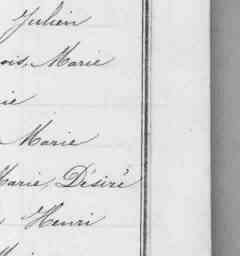 Julien
ois, Marie
ie
Marie
Marie, Désiré
Henri